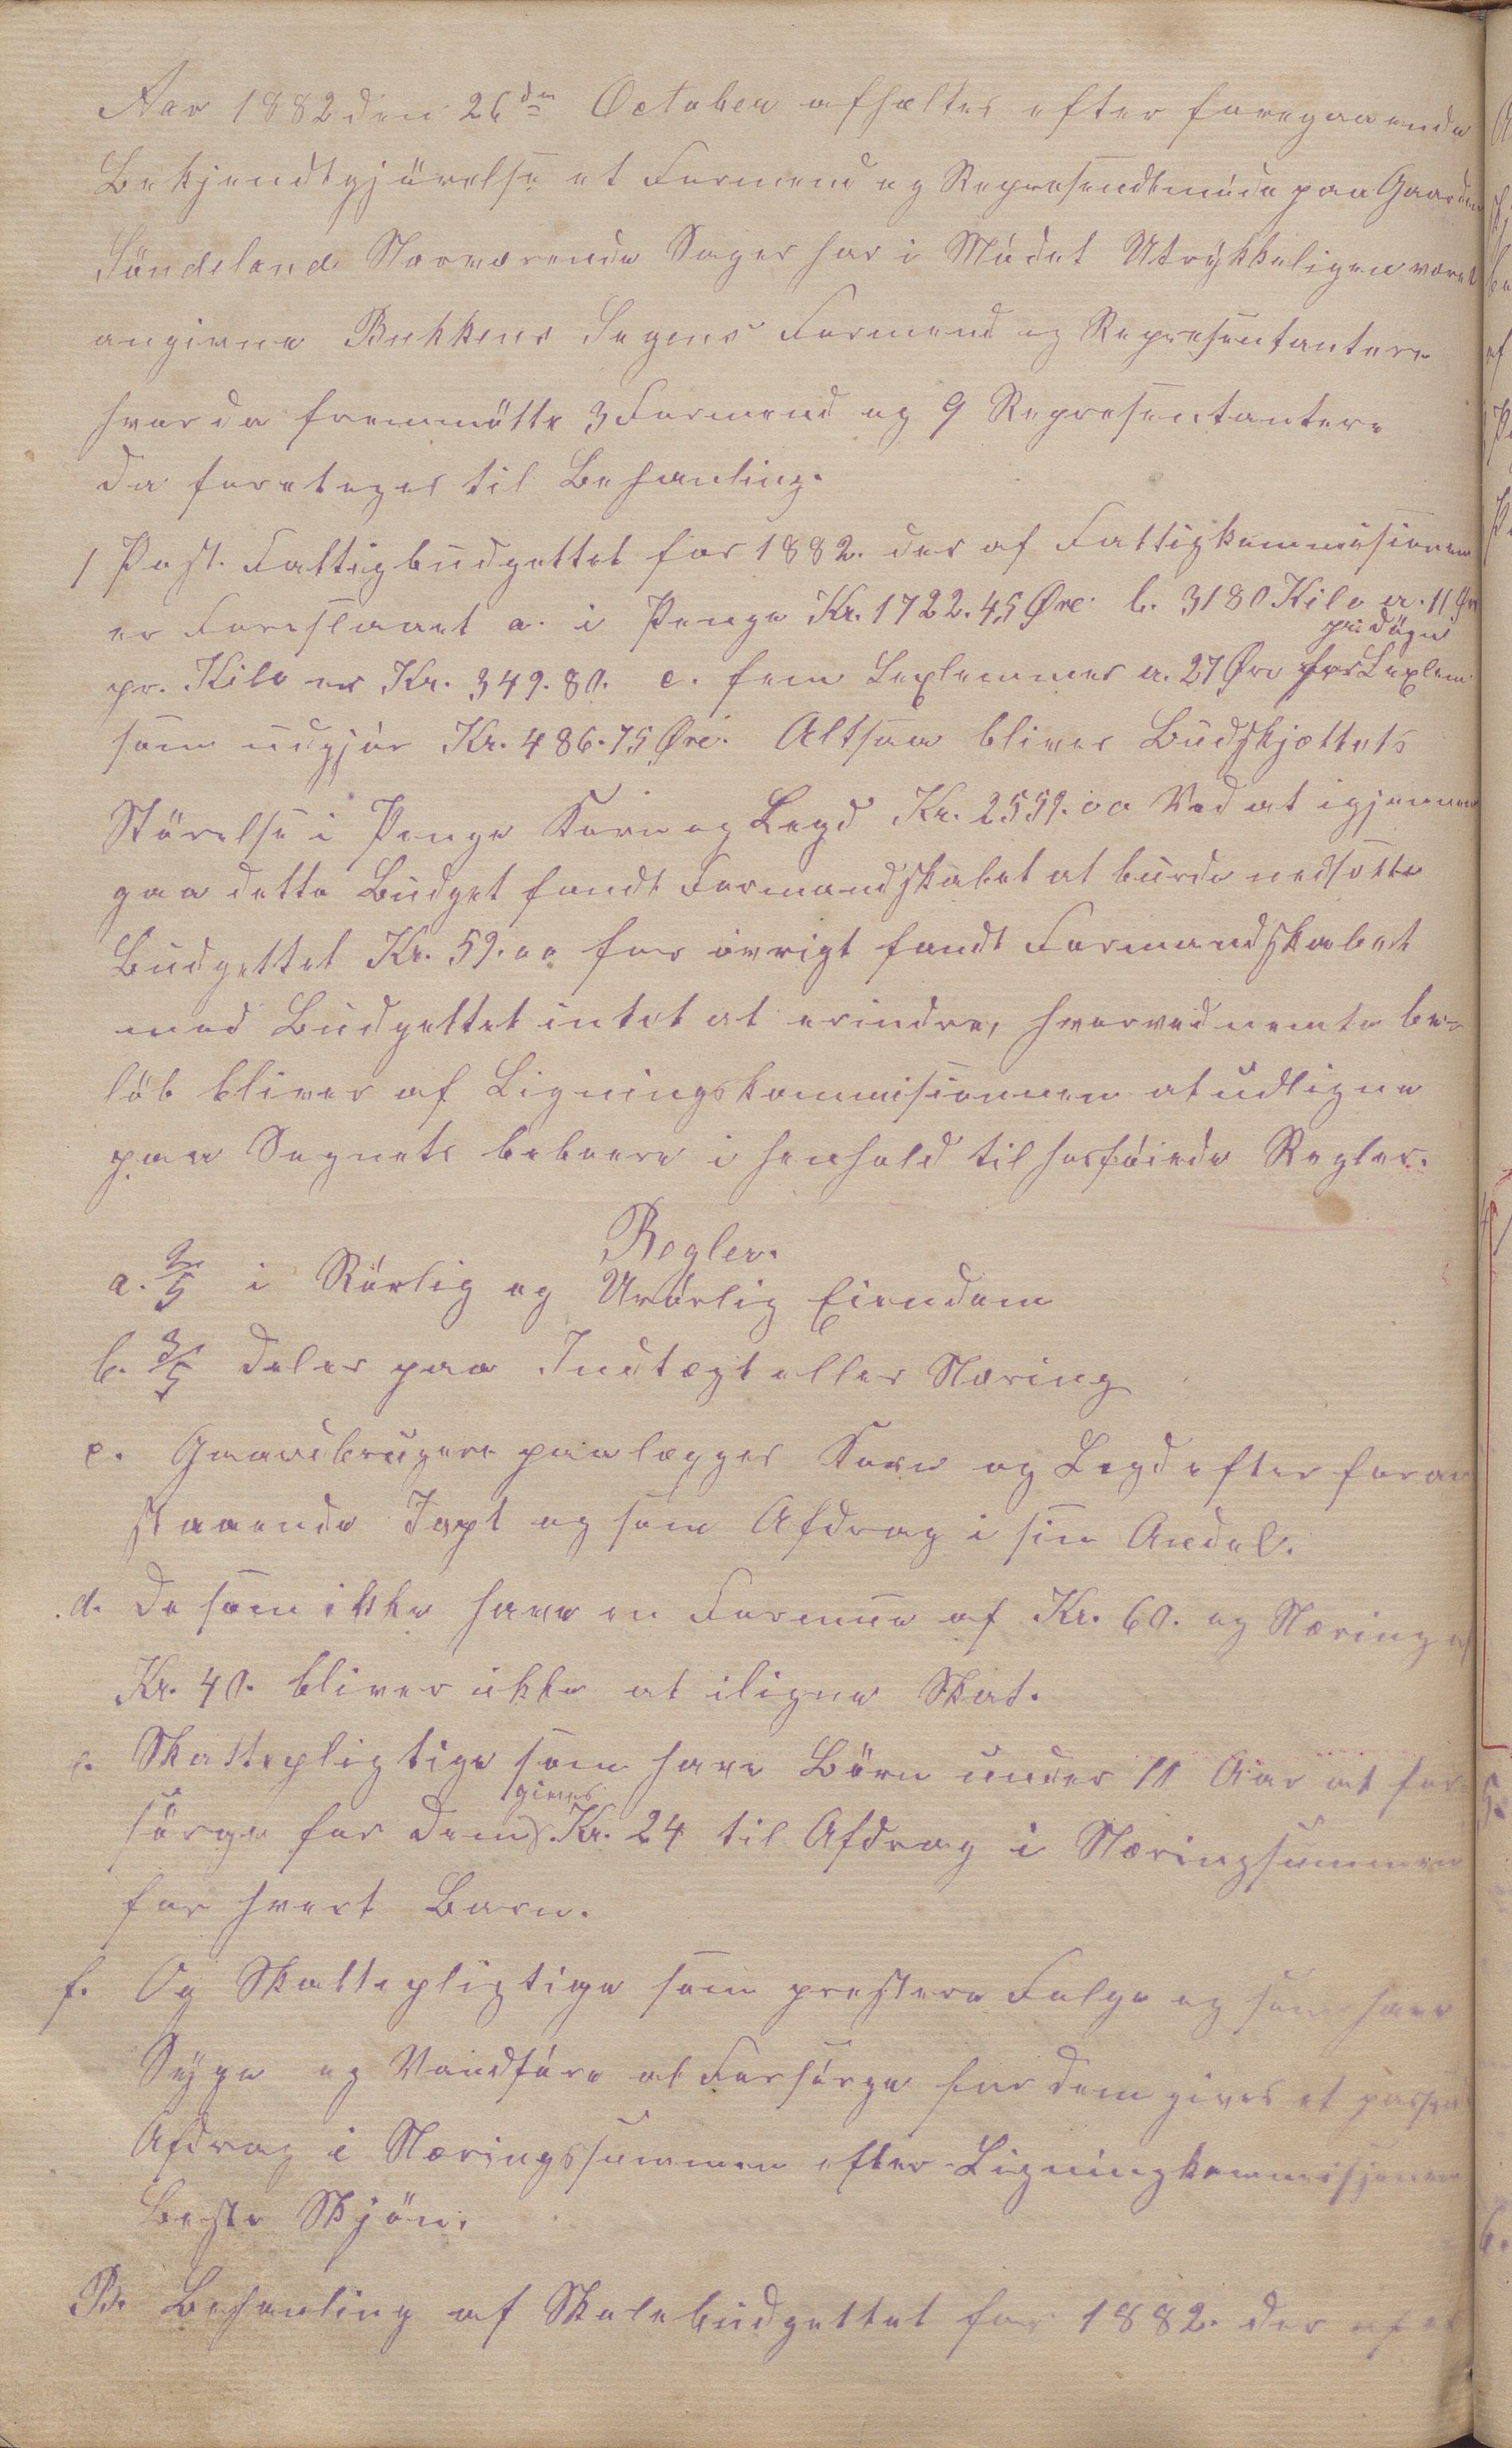 Aar 1882 den 26den October afholtes efter foregaaende
Bekjendtgjörelse et Formend og Represendtmöde paa Gaarden
Söndeland Nærværende Sager har i Mödet Utrykkeligen været
angivne Bukkens Sogens Formend og Representantere
hvor da fremmötte 3 Formend og 9 Representantere
da foretoges til Behanling.
1 Post. Fattigbudgettet for 1882. der af Fattigkommisionen
er Foreslaaet a. i Penge Kr. 1722.45 Øre. b. 3180 Kilo a. 11 Øre
pr. Kilo er Kr. 349.80. c. fem Leglemmer a. 27 Øre pr. dögn for Leglem
som udgjör Kr. 486.75 Øre. Altsaa bliver Budskjættets
Störelse i Penge Korn og Legd Kr. 2559.00 Ved at igjennem
gaa dette Budget fandt Formandskabet at burde nedsætte
Budgettet Kr. 59.00 for övrigt fandt Formandskabet
med Budgettet intet at erindre, hvorved nemte be-
löb bliver af Ligningskommisionnen at udligne
paa Sognets beboere i henhold til hosföiede Regler.
Regler.
a. 2/5 i Rörlig og Urörlig Eiendom
b. 3/5 deler paa Indtægt eller Næring
c. Gaardbrugere paalægges Korn og Legd efter foran
staaende Taxt og som Afdrag i sin Andel.
d. De som ikke have en Formue af Kr. 60. og Næring af
Kr. 40. bliver ikke at iligne Skat.
e. Skattepligtige som have Börn under 10 Aar at for-
sörge for dem gives Kr. 24 til Afdrag i Næringsummen
for hvert Barn.
f. Og Skattepligtige som prestere Folge og som have
Syge og Vandföre at Forsörge for dem gives et passende
Afdrag i Næringssummen efter Ligningkommisjonen
beste Skjön.
B. Behanling af Skolebudgettet for 1882. der af